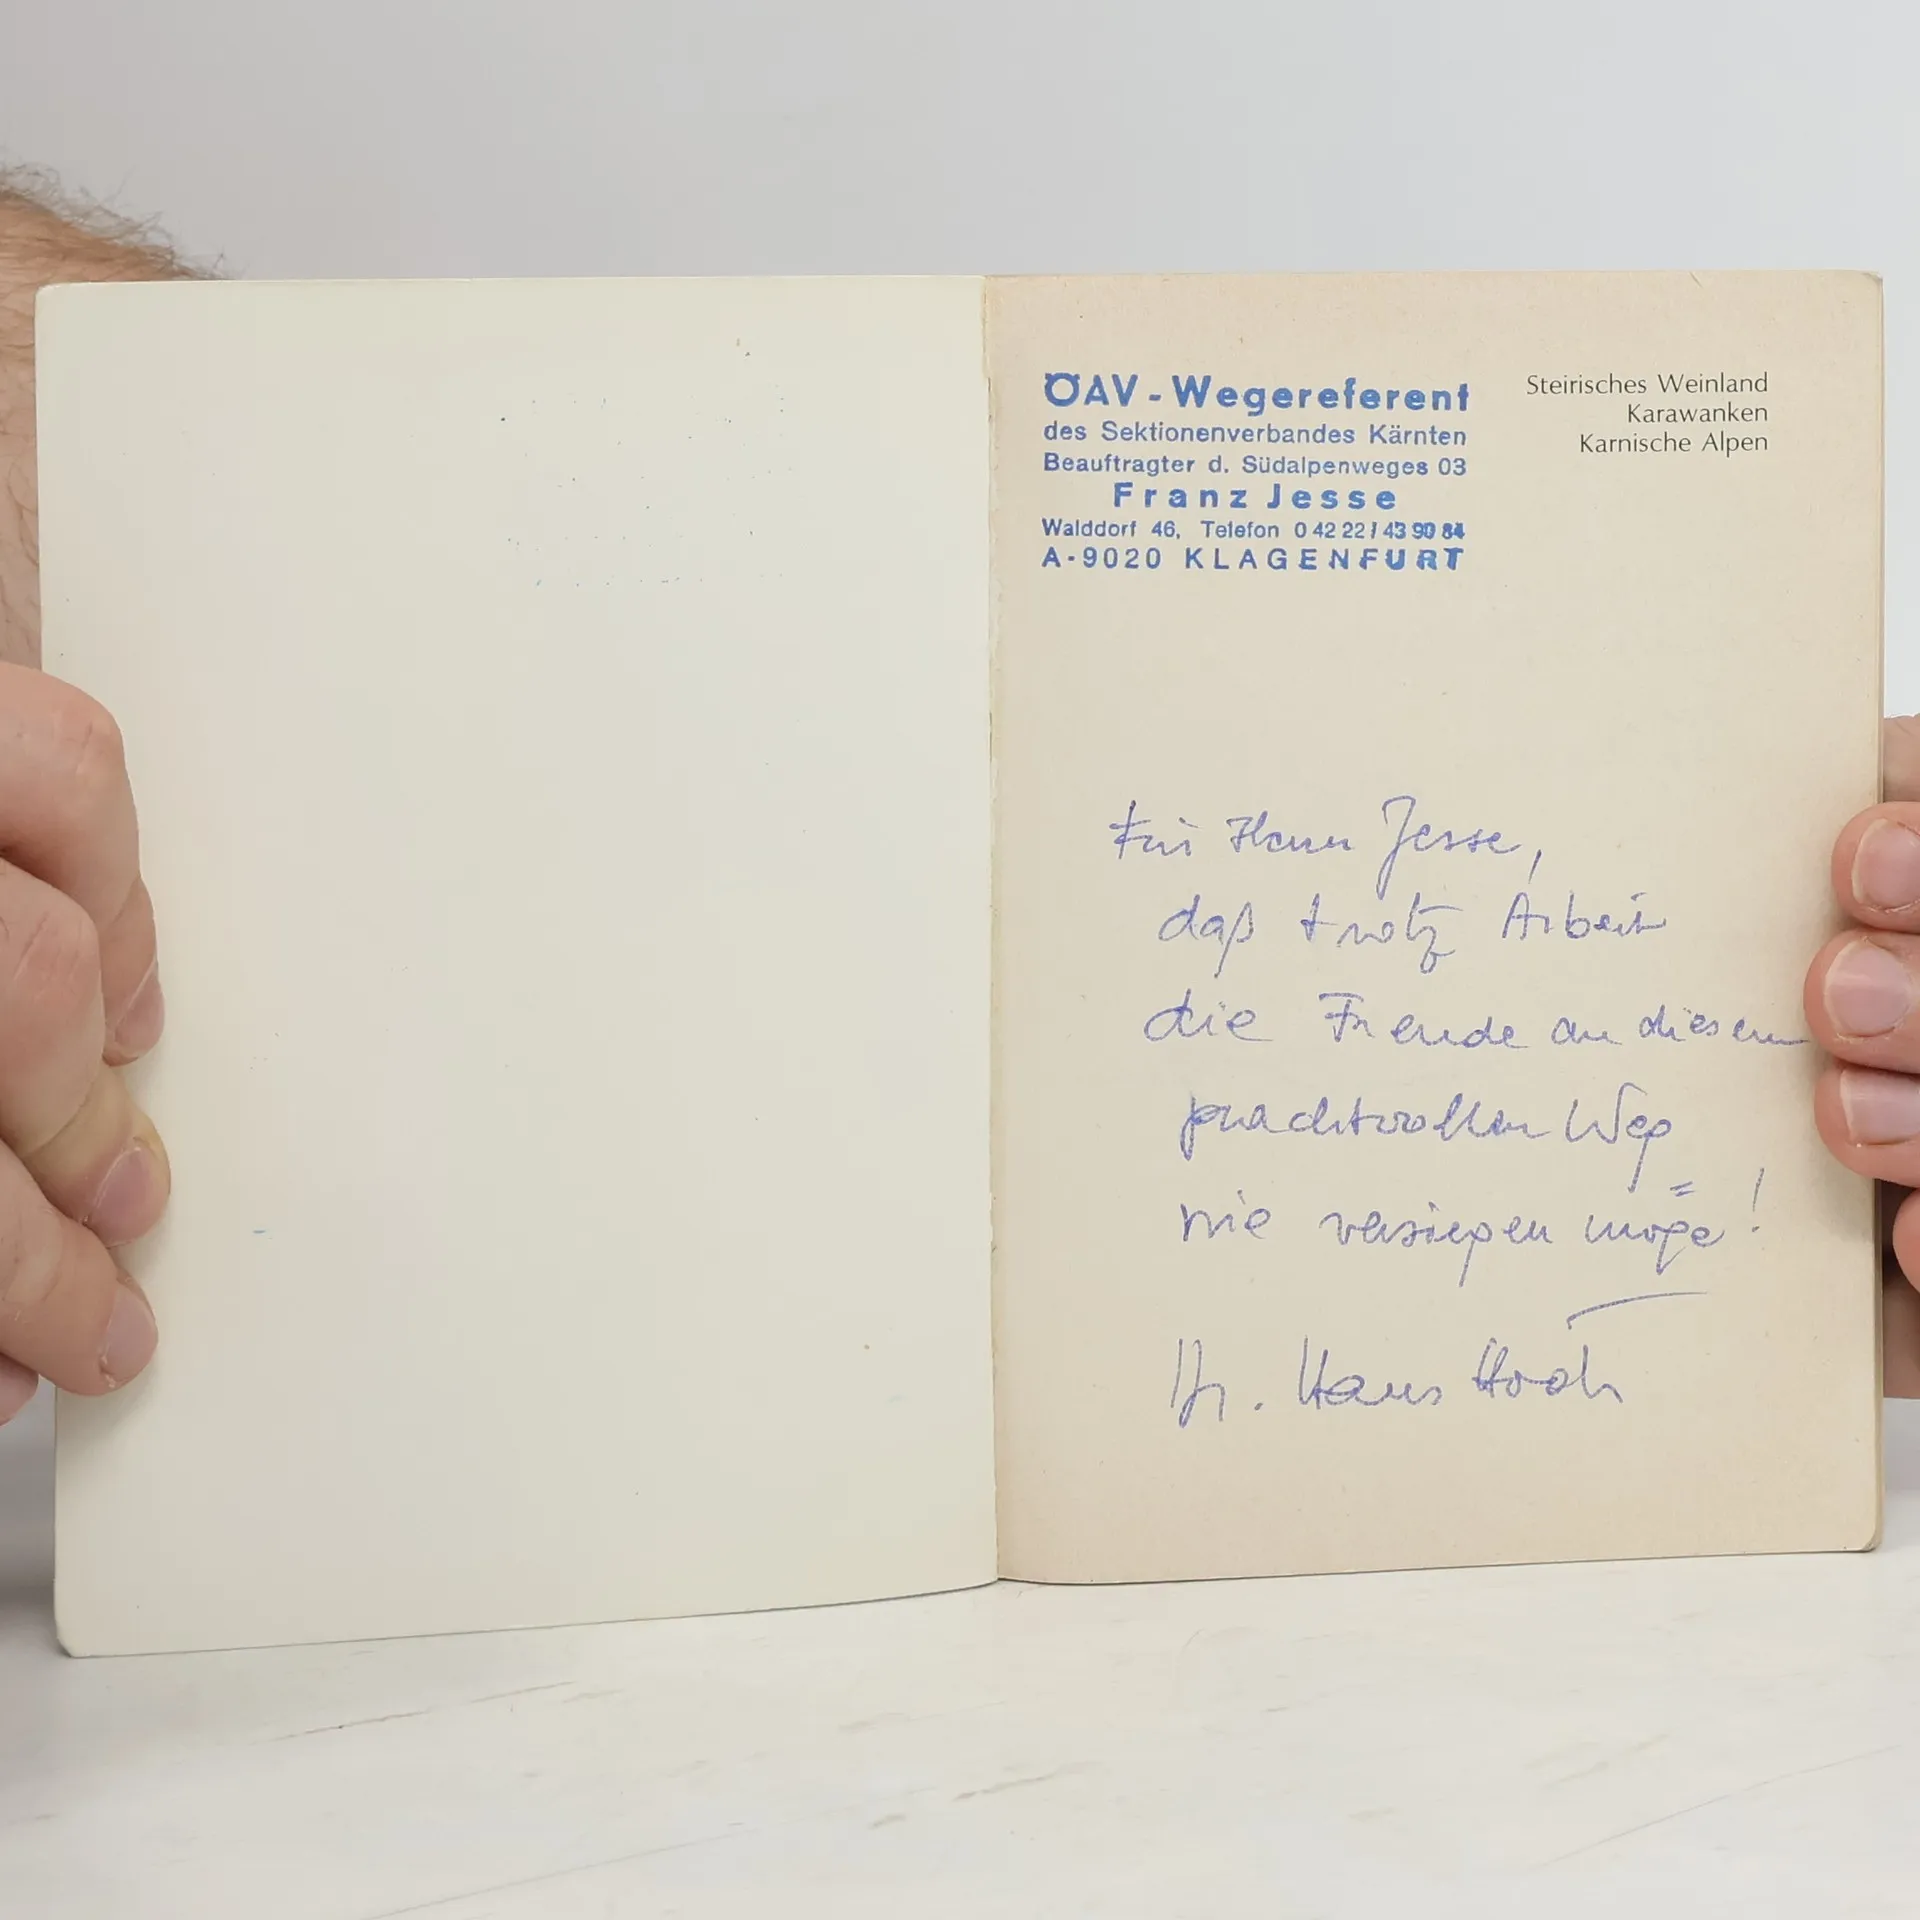 ÖAV-Wegereferent
des Sektionenverbandes Kärnten
Beauftragter d. Südalpenweges 03
Franz Jesse
Walddorf 46, Telefon 0 42 22 / 43 90 84
A-9020 KLAGENFURT
Steirisches Weinland
Karawanken
Karnische Alpen
Für Herrn Jesse,
daß trotz Arbeit
die Freude an diesem
prachtvollen Weg
nie versiegen möge!
Dr. Hans Hödl